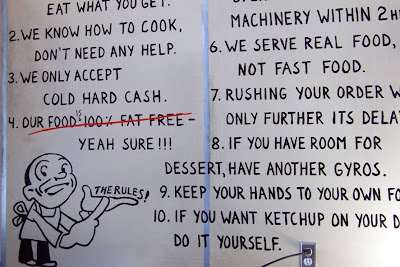 EAT WHAT YOU GET.
2. WE KNOW HOW TO COOK,
DON'T NEED ANY HELP.
3. WE ONLY ACCEPT
COLD HARD CASH.
4. OUR FOOD IS 100% FAT FREE -
YEAH SURE!!!
THE RULES!
MACHINERY WITHIN 2
6. WE SERVE REAL FOOD,
NOT FAST FOOD.
7. RUSHING YOUR ORDER
ONLY FURTHER ITS
8. IF YOU HAVE ROOM FOR
DESSERT, HAVE ANOTHER GYROS.
9. KEEP YOUR HANDS TO YOUR OWN
10. IF YOU WANT KETCHUP ON YOUR
DO IT YOURSELF.